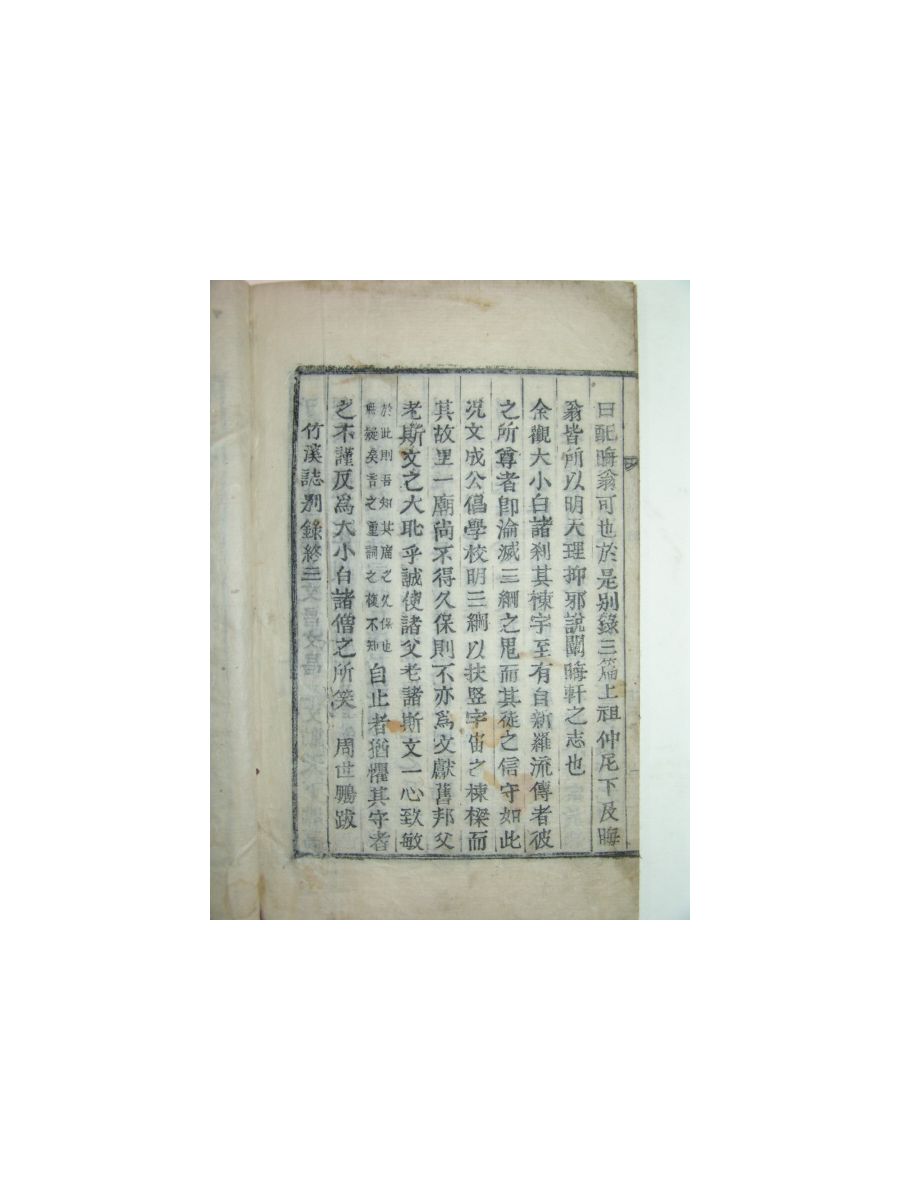 曰配晦翁可也於是別錄三篇上祖仲尼下及晦
翁皆所以明天理抑邪說闡晦軒之志也
余觀大小白諸刹其棟宇至有自新羅流傳者彼
之所尊者卽淪滅三綱之鬼而其徒之信守如此
况文成公倡學校明三綱以扶竪宇宙之棟樑而
其故里一廟尚不得久保則不亦爲文獻舊邦父
老斯文之大恥乎誠使諸父老諸斯文一心致敏
於此則吾知其廟之久保也無疑矣言之重詞之複不知自止者猶懼其守者
之不謹反爲大小白諸僧之所笑 周世鵬跋
竹溪誌別錄終三